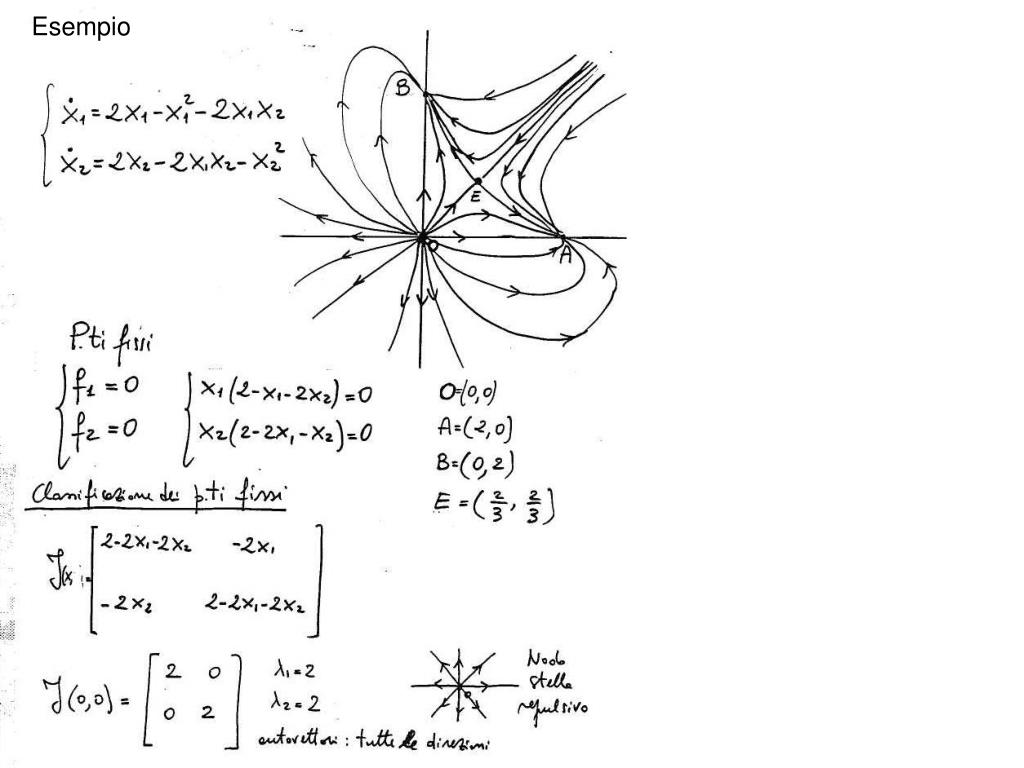 Esempio
ẋ₁ = 2x₁ - x₁² - 2x₁x₂
ẋ₂ = 2x₂ - 2x₁x₂ - x₂²
B
E
O
A
P.ti fissi
f₁ = 0
f₂ = 0
x₁(2-x₁-2x₂)=0
x₂(2-2x₁-x₂)=0
O=(0,0)
A=(2,0)
B=(0,2)
E=(2/3, 2/3)
Classificazione dei p.ti fissi
J(x)=
2-2x₁-2x₂ -2x₁
-2x₂ 2-2x₁-2x₂
J(0,0)=
2 0
0 2
λ₁=2
λ₂=2
autovettori: tutte le direzioni
O
Nodo
stella
repulsivo